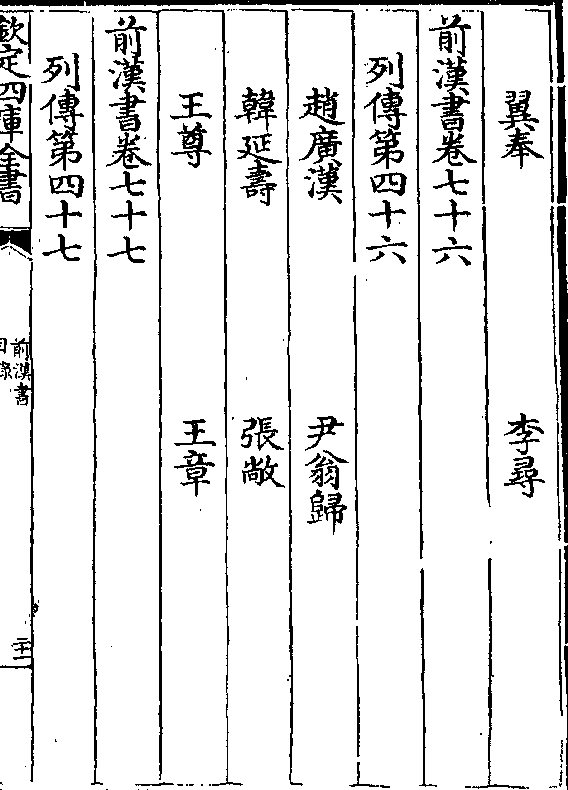 翼奉　李尋
前漢書卷七十六
列傳第四十六
趙廣漢　尹翁歸
韓延壽　張敞
王尊　王章
前漢書卷七十七
列傳第四十七
欽定四庫全書
前漢書
目錄
二十二